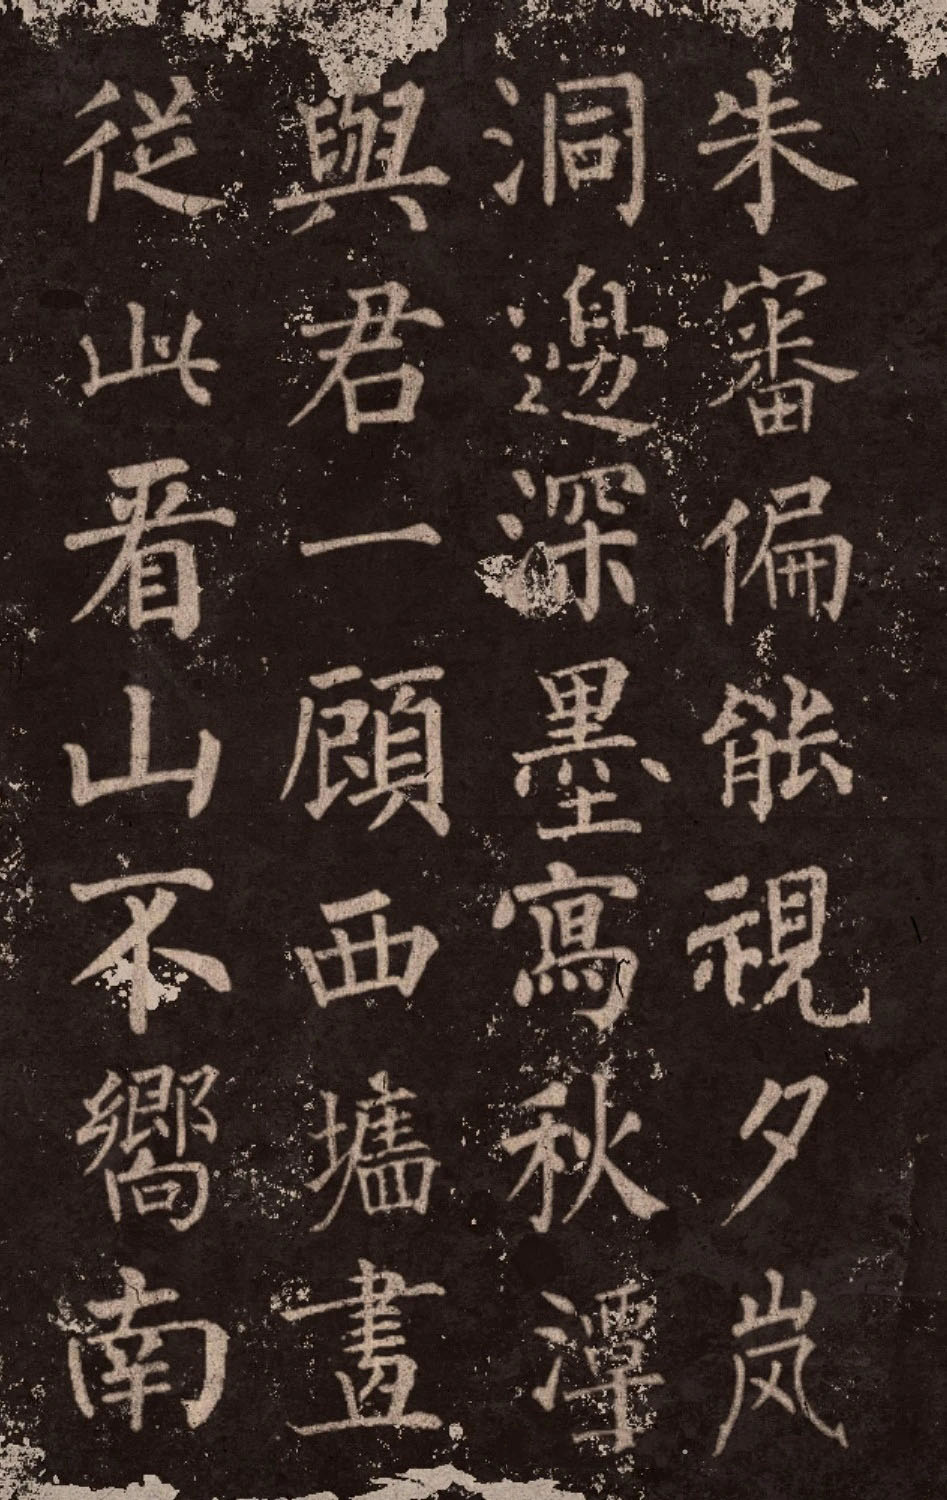 朱審偏能視夕岚
洞邊深墨寫秋潭
與君一顧西墻畫
從此看山不嚮南